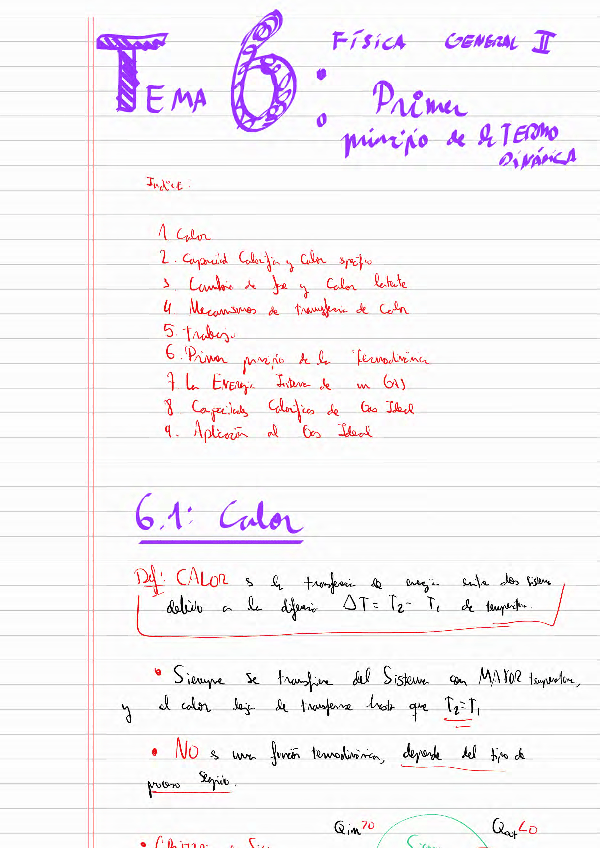 FÍSICA GENERAL II
TEMA 6:
Primer
principio de la TERMO
DINÁMICA
Indice.
1 Calor
2. Capacidad Calorífica y Calor
3 Cambio de fase y Calor latente
4 Mecanismos de transferencia de Calor
5. Trabajo
6. Primer principio de la Termodinámica
7 La Energía Interna de un GAS
8 Capacidades Caloríficas de Gas Ideal
9. Aplicación al Gas Ideal
6.1: Calor
Def: CALOR es la transferencia de energía entre dos sistemas
debido a la diferencia ΔT = T2 - T1 de temperatura.
• Siempre se transfiere del Sistema con MAYOR temperatura,
y el calor deja de transferirse hasta que T2=T1
• NO es una función termodinámica, depende del tipo de
proceso seguido.
Qin>0 Qout<0